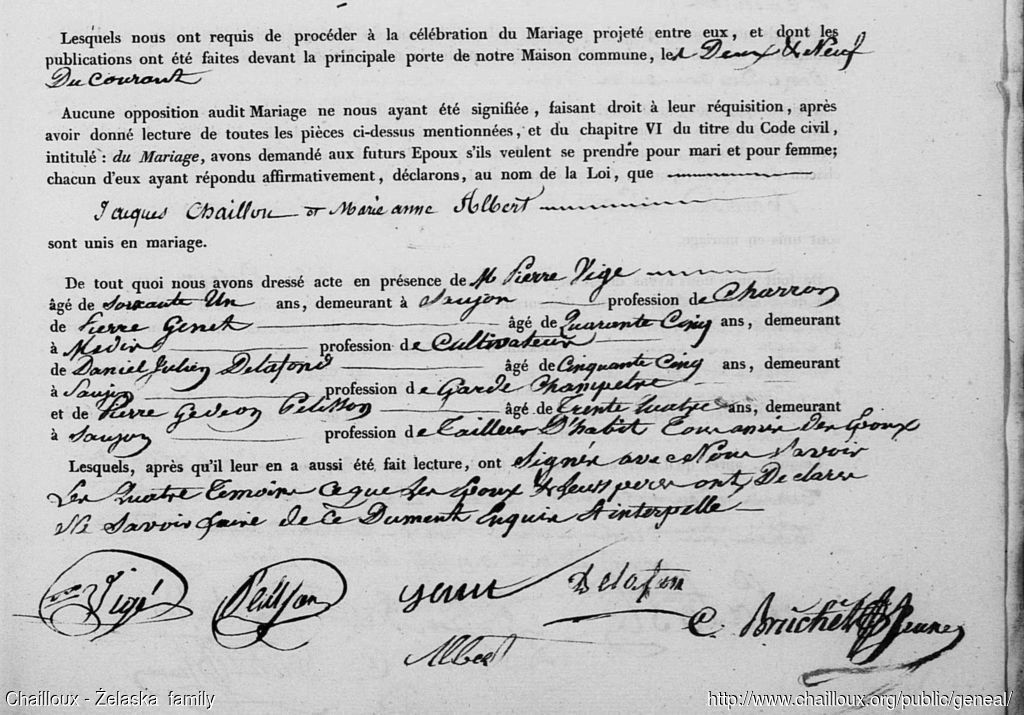 Lesquels nous ont requis de procéder à la célébration du Mariage projeté entre eux, et dont les
publications ont été faites devant la principale porte de notre Maison commune, les Deux & Neuf
Du Courant
Aucune opposition audit Mariage ne nous ayant été signifiée, faisant droit à leur réquisition, après
avoir donné lecture de toutes les pièces ci-dessus mentionnées, et du chapitre VI du titre du Code civil,
intitulé : du Mariage, avons demandé aux futurs Epoux s'ils veulent se prendre pour mari et pour femme;
chacun d'eux ayant répondu affirmativement, déclarons, au nom de la Loi, que
Jacques Chaillou et Marie anne Albert
sont unis en mariage.
De tout quoi nous avons dressé acte en présence de M Pierre Vige
âgé de Soixante Un ans, demeurant à Saujon profession de Charron
de Pierre Genet âgé de Quarante Cinq ans, demeurant
à Medis profession de Cultivateur
de Daniel Julien Delafond âgé de Cinquante Cinq ans, demeurant
à Saujon profession de Garde Champetre
et de Pierre Gedeon Pelisson âgé de Trente Quatre ans, demeurant
à Saujon profession de Tailleur D'habit Tous amis des Epoux
Lesquels, après qu'il leur en a aussi été fait lecture, ont Signér avec Nous Savoir
Les Quatre Temoins Ce que Les Epoux & leurs peres ont Declare
Ne Savoir faire de Ce Dument Enquis & interpelle
Vigé Pelisson Genet Delafon
C. Bruchet Jeune
Albert
Chailloux - Żelaska family http://www.chailloux.org/public/geneal/